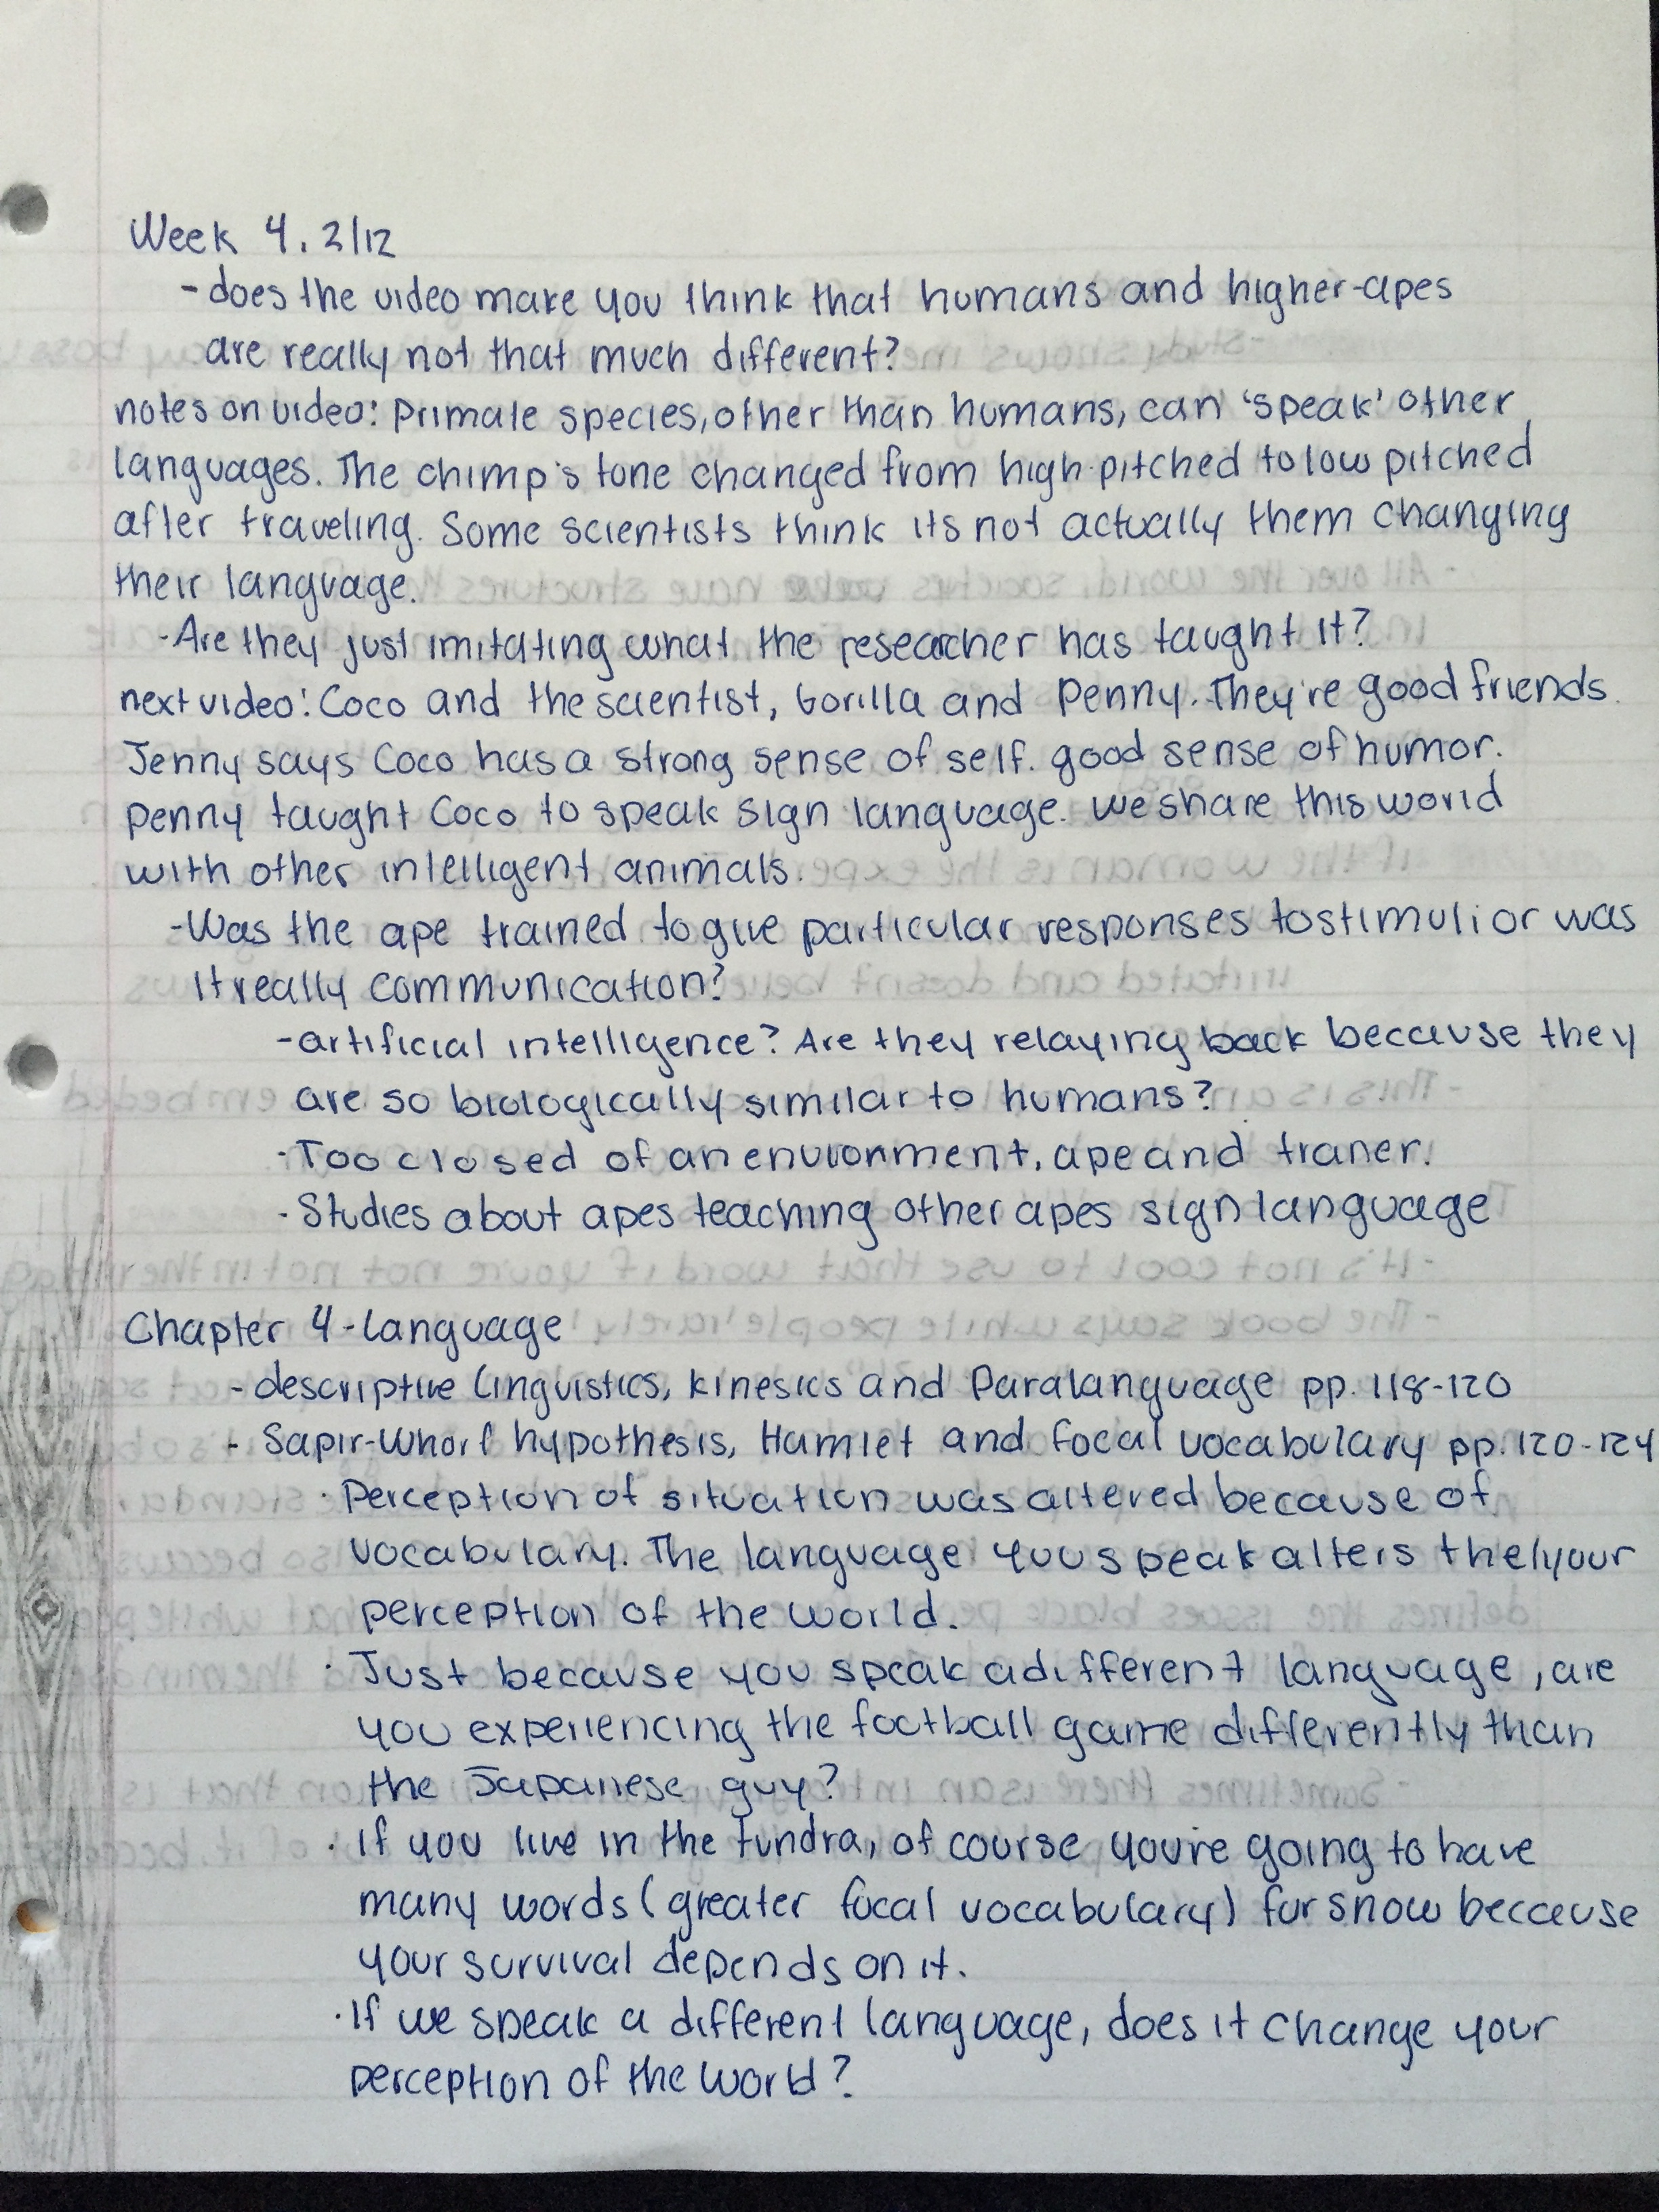 Week 4, 2/12
- does the video make you think that humans and higher-apes
are really not that much different?
notes on video: Primate species, other than humans, can 'speak' other
languages. The chimp's tone changed from high-pitched to low pitched
after traveling. Some scientists think its not actually them changing
their language.
- Are they just imitating what the researcher has taught it?
next video: Coco and the scientist, Gorilla and Penny. They're good friends.
Jenny says Coco has a strong sense of self. good sense of humor.
Penny taught Coco to speak sign language. We share this world
with other intelligent animals.
- Was the ape trained to give particular responses to stimuli or was
it really communication?
- artificial intelligence? Are they relaying back because they
are so biologically similar to humans?
- Too closed of an environment, ape and traner.
- Studies about apes teaching other apes sign language
Chapter 4 - Language
- descriptive linguistics, kinesics and Paralanguage pp. 118-120
- Sapir-Whorf hypothesis, Hamlet and focal vocabulary pp. 120-124
· Perception of situation was altered because of
vocabulary. The language you speak alters the/your
perception of the world.
· Just because you speak a different language, are
you experiencing the football game differently than
the Japanese guy?
· If you live in the tundra, of course you're going to have
many words (greater focal vocabulary) for snow because
your survival depends on it.
· If we speak a different language, does it change your
perception of the world?